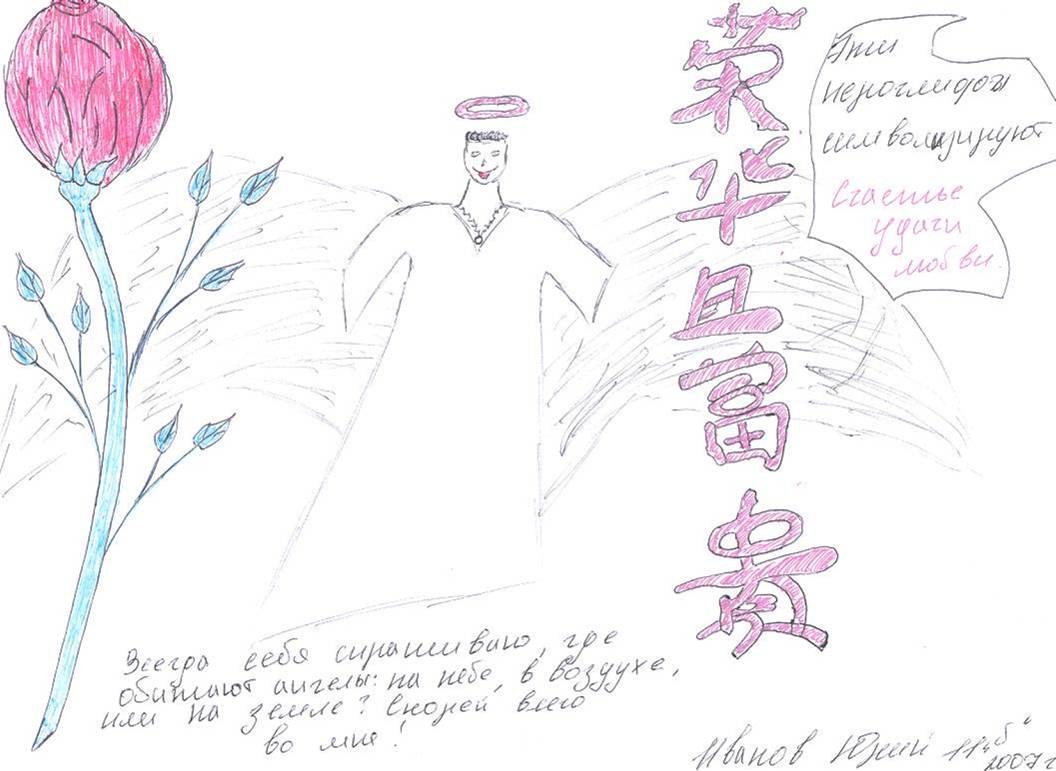 荣
华
且
富
贵
Эти
иероглифы
символизируют
Счастье
удачи
любви.
Всегда себя спрашиваю, где
обитают ангелы: на небе, в воздухе,
или на земле? Скорей всего
во мне!
Иванов Юрий 11 „б“
2007 г